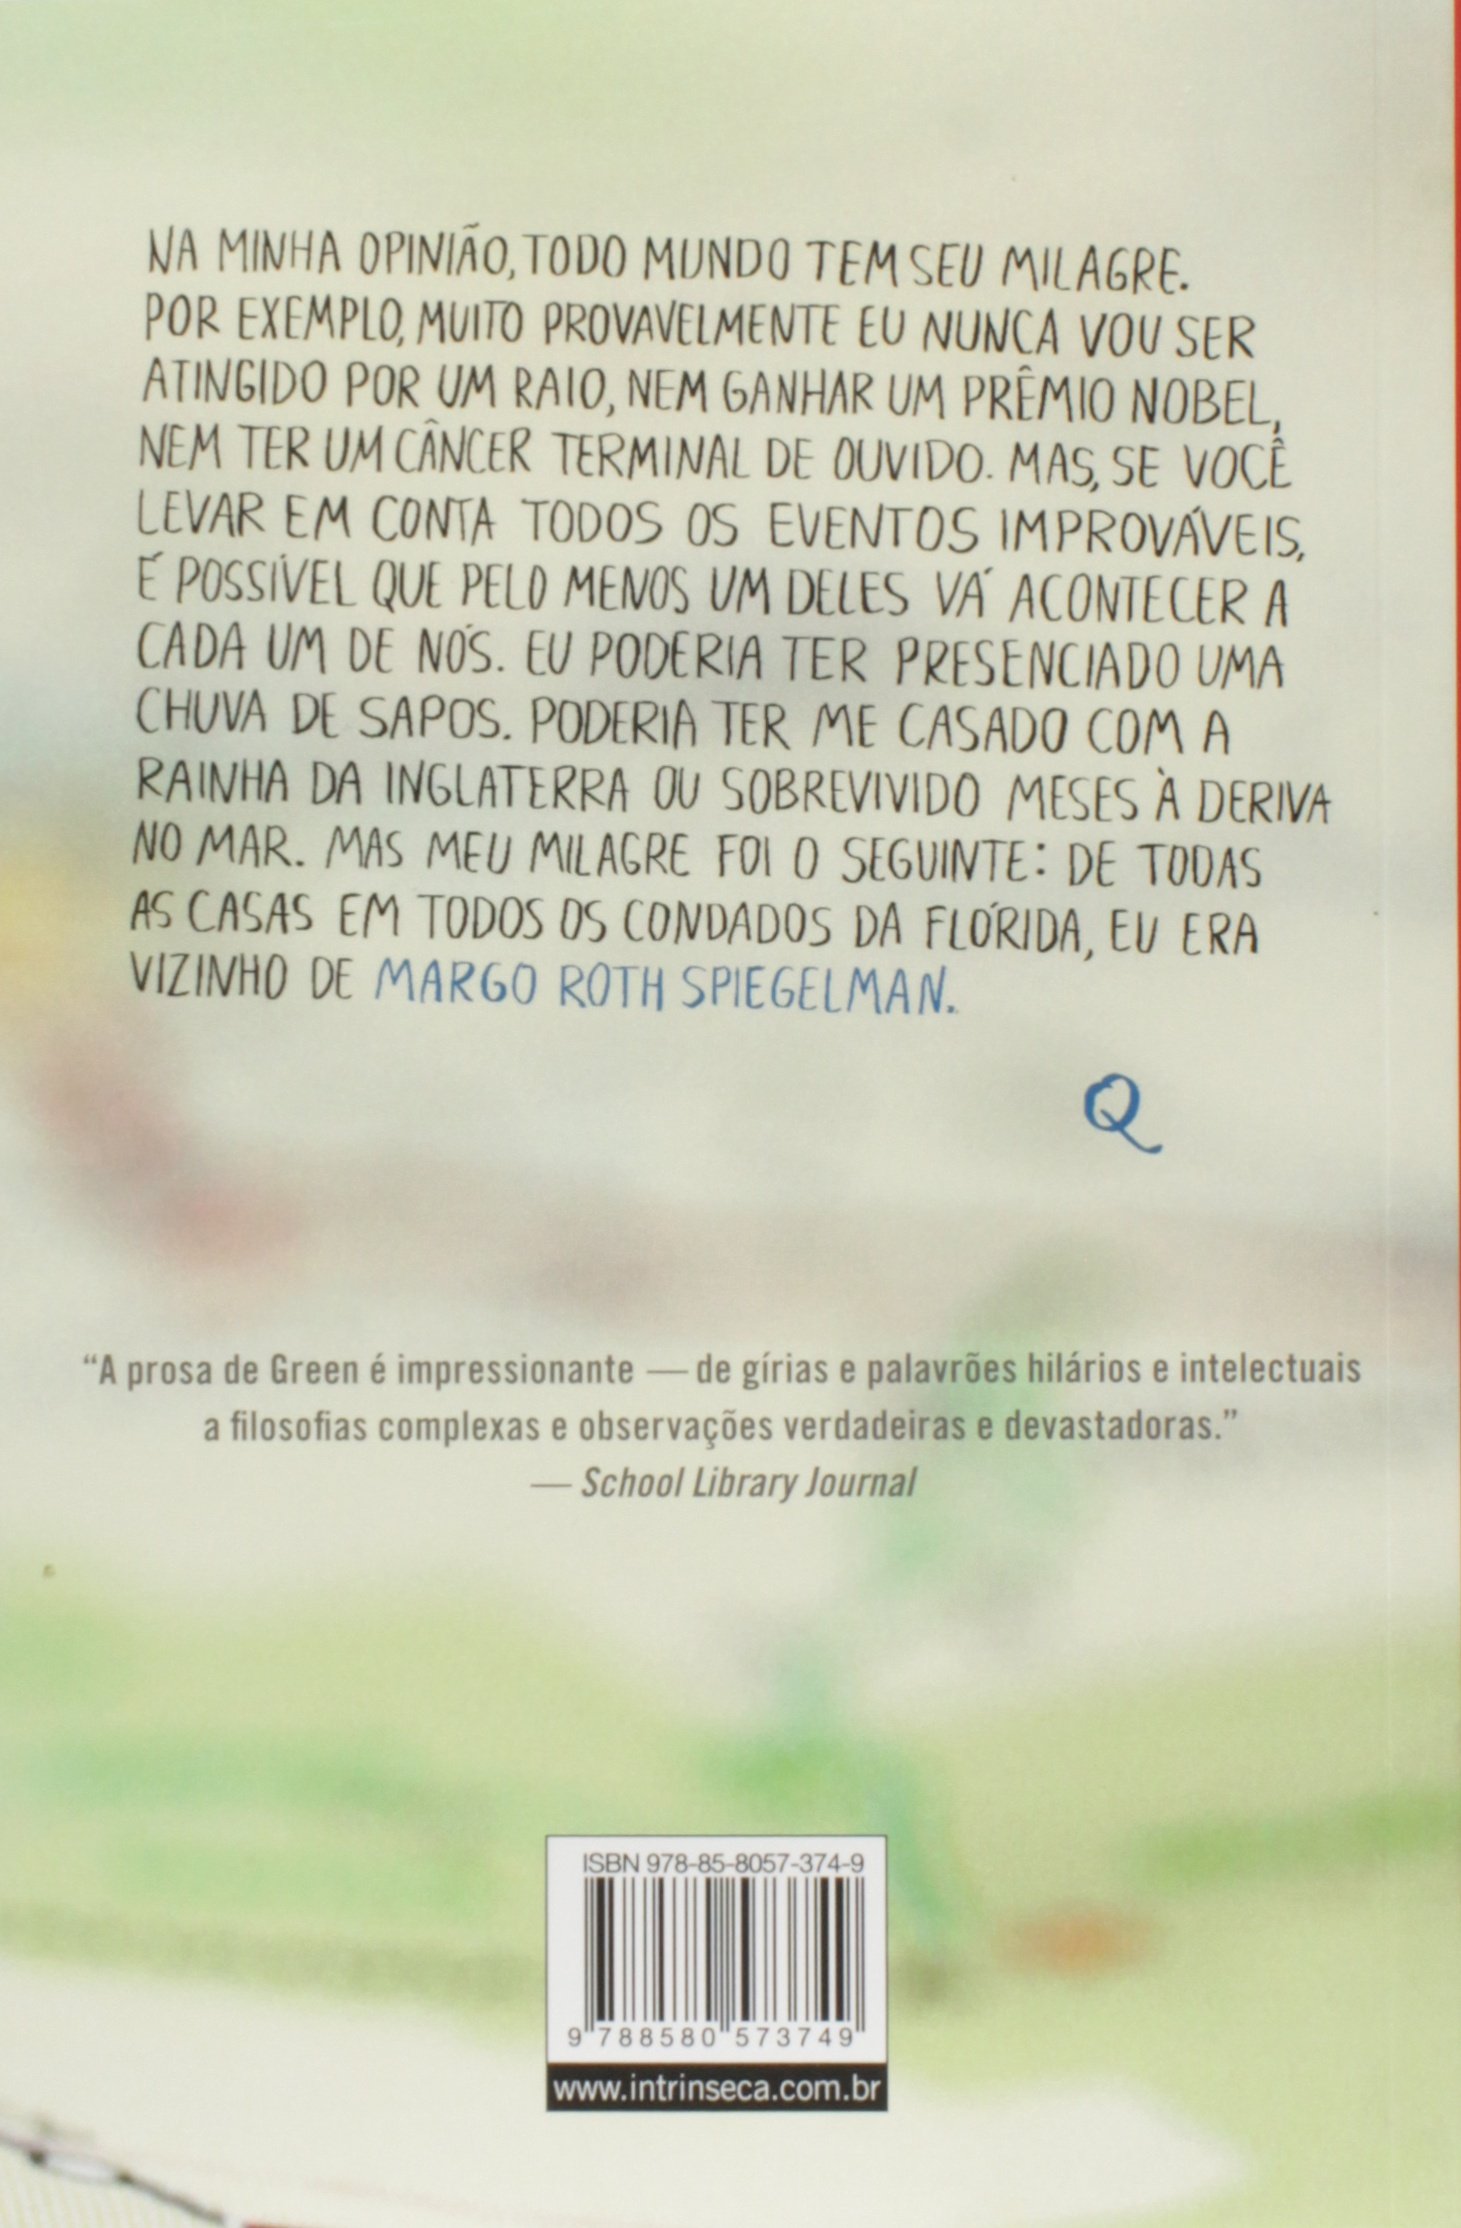 NA MINHA OPINIÃO, TODO MUNDO TEM SEU MILAGRE.
POR EXEMPLO, MUITO PROVAVELMENTE EU NUNCA VOU SER
ATINGIDO POR UM RAIO, NEM GANHAR UM PRÊMIO NOBEL,
NEM TER UM CÂNCER TERMINAL DE OUVIDO. MAS, SE VOCÊ
LEVAR EM CONTA TODOS OS EVENTOS IMPROVÁVEIS,
É POSSÍVEL QUE PELO MENOS UM DELES VÁ ACONTECER A
CADA UM DE NÓS. EU PODERIA TER PRESENCIADO UMA
CHUVA DE SAPOS. PODERIA TER ME CASADO COM A
RAINHA DA INGLATERRA OU SOBREVIVIDO MESES À DERIVA
NO MAR. MAS MEU MILAGRE FOI O SEGUINTE: DE TODAS
AS CASAS EM TODOS OS CONDADOS DA FLÓRIDA, EU ERA
VIZINHO DE MARGO ROTH SPIEGELMAN.
Q
“A prosa de Green é impressionante — de gírias e palavrões hilários e intelectuais
a filosofias complexas e observações verdadeiras e devastadoras.”
— School Library Journal
ISBN 978-85-8057-374-9
9 788580 573749
www.intrinseca.com.br